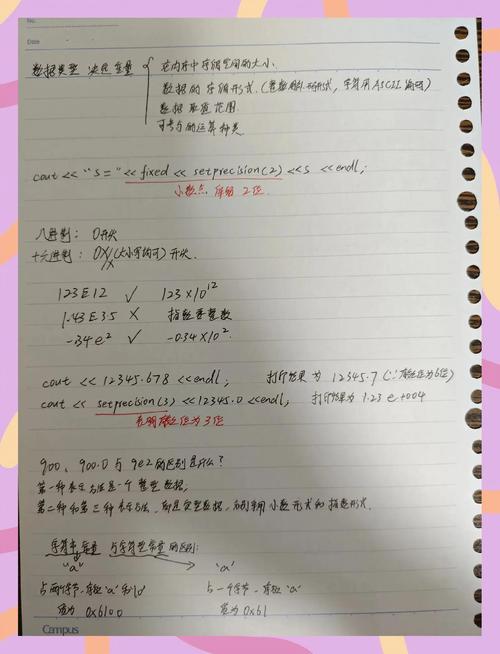 No.
Date
数据类型 决定 变量 { 在内存中存储空间的大小.
数据的存储形式. (整数用补码形式, 字符用ASCII 编码)
数据 取值 范围.
可参与的运算种类
cout << "s=" << fixed << setprecision(2) << s << endl;
小数点 保留 2位.
八进制: 0开头
十六进制: 0X/(大小写均可) 开头.
/x
123E12 ✓ 123×10¹²
1.43E3.5 × 指数要整数
-.34e² ✓ -0.34×10².
cout << 12345.678 << endl; 打印结果为 12345.7 (∵ 位为6位)
cout << setprecision(3) << 12345.0 << endl; 打印结果为 1.23e+004
位为3位
900、900.0 与 9e2 的区别是什么?
第一种表示方法是一个整型数据,
第二种和第三种表示方法, 都是实型数据, 分别采用小数形式和指数形式.
字符串常量 与字符型常量的区别:
"a" 'a'
占两个字节, 存放 'a' 和 '\0' 占一个字节, 存放 'a'
值为 0x6100 值为 0x61
Campus